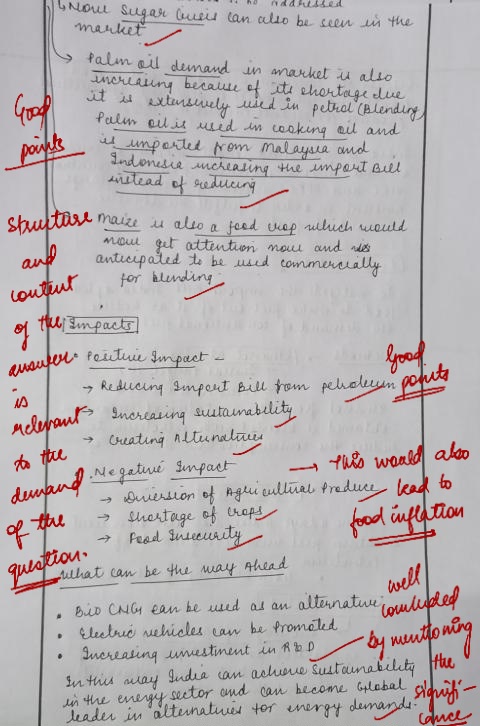 Now Sugar Crisis can also be seen in the
market.
Palm oil demand in market is also
increasing because of its shortage due
it is extensively used in petrol (Blending)
Palm oil is used in cooking oil and
is imported from Malaysia and
Indonesia increasing the import Bill
instead of reducing
Good
points
Maize is also a food crop which would
now get attention now and
anticipated to be used commercially
for blending.
Structure
and
content
of the
answer
is
relevant
to the
demand
of the
question.
Impacts
Positive Impact -
→ Reducing Import Bill from petroleum
→ Increasing Sustainability
→ Creating Alternatives
Good
points
Negative Impact
→ Diversion of Agricultural Produce
→ Shortage of crops
→ Food Insecurity
→ This would also
lead to
food inflation
What can be the way Ahead
• Bio CNG can be used as an alternative.
• Electric vehicles can be Promoted
• Increasing investment in R&D
In this way India can achieve Sustainability
in the energy sector and can become Global
leader in alternatives for energy demands.
well
concluded
by mentioning
the
signifi-
cance